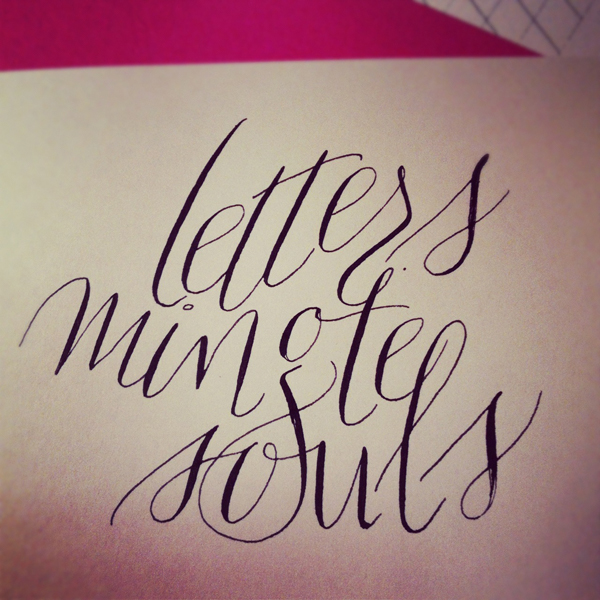 letters
mingle
souls